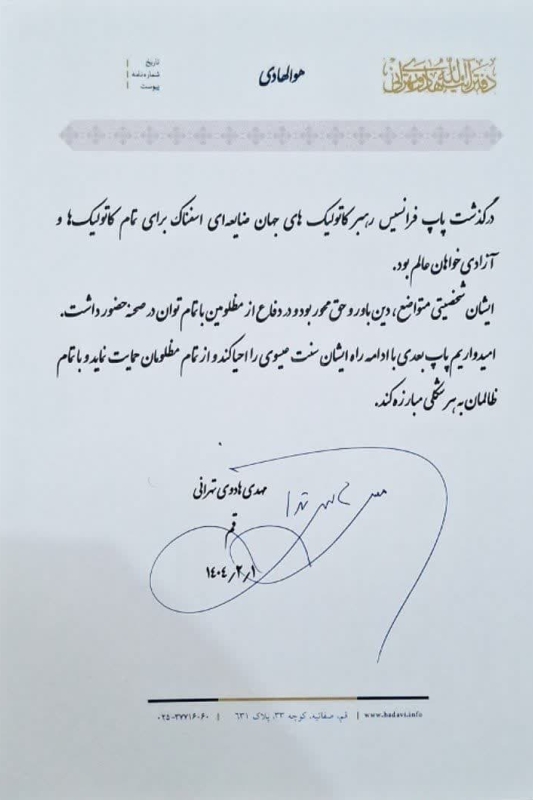 دفتر آیت‌الله هادوی تهرانی
هوالهادی
تاریخ
شماره‌نامه
پیوست
درگذشت پاپ فرانسیس رهبر کاتولیک های جهان ضایعه‌ای اسفناک برای تمام کاتولیک‌ها و
آزادی خواهان عالم بود.
ایشان شخصیتی متواضع، دین باور و حق محور بود و در دفاع از مظلومین با تمام توان در صحنه حضور داشت.
امیدواریم پاپ بعدی با ادامه راه ایشان سنت عیسوی را احیا کند و از تمام مظلومان حمایت نماید و با تمام
ظالمان به هر شکلی مبارزه کند.
مهدی هادوی تهرانی
قم
۱۴۰۴/۲/۱
www.hadavi.info | قم، صفائیه، کوچه ۳۳، پلاک ۶۳۱ | ۰۲۵-۳۷۷۱۶۰۶۰